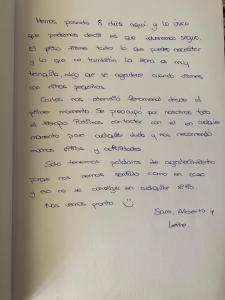 Hemos pasado 8 días aquí y lo único
que podemos decir es que volveremos seguro.
El piso tiene todo lo que puedes necesitar
y lo que no también. La zona es muy
tranquila, algo que se agradece cuando vienes
con niños pequeños.
Carlos nos atendió fenomenal desde el
primer momento. Se preocupó por nosotros todo
el tiempo. Podíamos contactar con él en cualquier
momento para cualquier duda y nos recomendó
muchos sitios y actividades.
Solo tenemos palabras de agradecimiento
porque nos hemos sentido como en casa
y eso no se consigue en cualquier sitio.
Nos vemos pronto. ☺
Sara, Alberto y